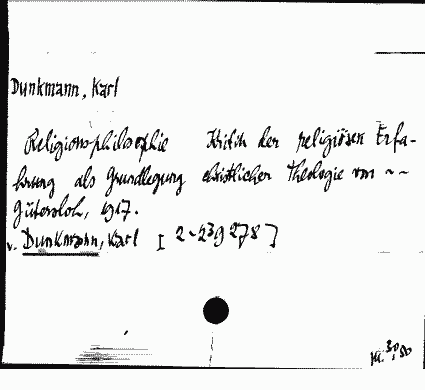 Dunkmann, Karl
Religionsphilosophie Kritik der religiösen Erfa-
hrung als Grundlegung christlicher Theologie von ~~
Gütersloh, 1917.
v. Dunkmann, Karl [2-239278]